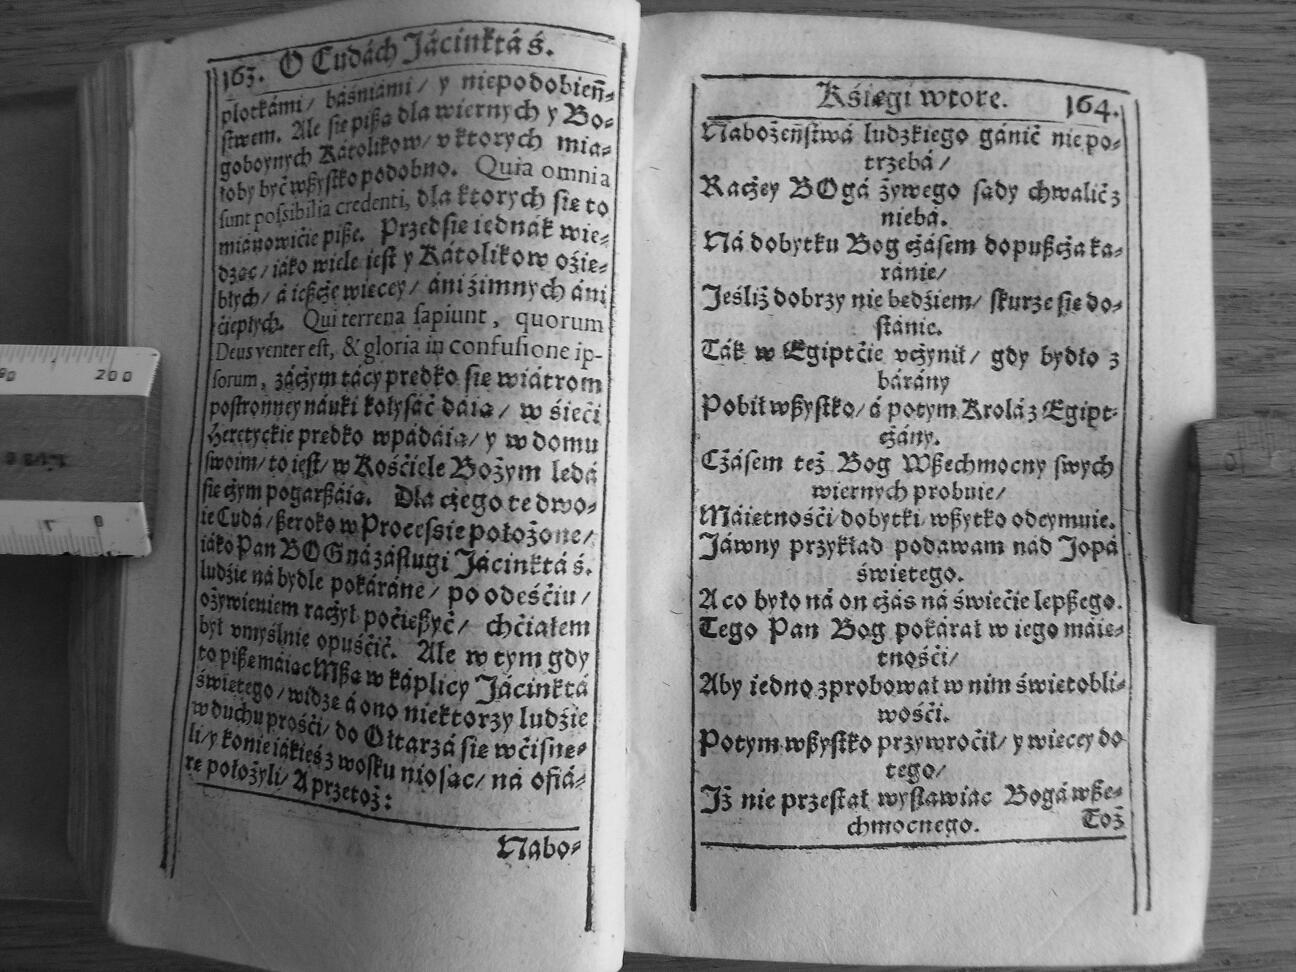 163. O Cudách Jácinktá ś.
plotkámi/ báśniámi/ y niepodobieñ⸗
stwem. Ale się pißą dla wiernych y Bo⸗
goboynych Kátolikow/ v ktorych mia⸗
łoby być wßystko podobno. Quia omnia
sunt possibilia credenti, dla ktorych się to
miánowićie piße. Przedsię iednák wie⸗
dząc/ iáko wiele iest y Kátolikow oźię⸗
błych/ á ießcże więcey/ áni źimnych áni
ćiepłych. Qui terrena sapiunt, quorum
Deus venter est, & gloria in confusione ip-
sorum, zácżym tácy prędko się wiátrom
postronney náuki kołysáć dáią/ w śieći
Heretyckie prędko wpádáią/ y w domu
swoim/ to iest/ w Kośćiele Bożym ledá
się cżym pogarßáią. Dla cżego te dwo⸗
ie Cudá/ ßeroko w Processie położone/
iáko Pan BOG ná zásługi Jácinktá ś.
ludźie ná bydle pokáráne/ po odeśćiu/
ożywieniem racżył poćießyć/ chćiałem
był vmyślnie opuśćić. Ale w tym gdy
to pißę máiąc Mßą w káplicy Jácinktá
świętego/ widzę á ono niektorzy ludźie
w duchu prośći/ do Ołtarzá się wćisnę⸗
li/ y konie iákieś z wosku niosąc/ ná ofiá⸗
rę położyli/ A przetoż:
Nabo⸗
Kśięgi wtore. 164.
Nabożeñstwá ludzkiego gánić nie po⸗
trzebá/
Racżey BOgá żywego sądy chwalić z
niebá.
Ná dobytku Bog cżásem dopußcża ka⸗
ránie/
Jeśliż dobrzy nie będźiem/ skurze się do⸗
stánie.
Ták w Egiptćie vcżynił/ gdy bydło z
bárány
Pobił wßystko/ á potym Krolá z Egipt⸗
cżány.
Cżásem też Bog Wßechmocny swych
wiernych probuie/
Máiętnośći/ dobytki/ wßytko odeymuie.
Jáwny przykład podawam nád Jopá
świętego.
A co było ná on cżás ná świećie lepßego.
Tego Pan Bog pokárał w iego máię⸗
tnośći/
Aby iedno zprobował w nim świętobli⸗
wośći.
Potym wßystko przywroćił/ y więcey do
tego/
Jż nie przestał wysławiáć Bogá wße⸗
chmocnego. Toż
200